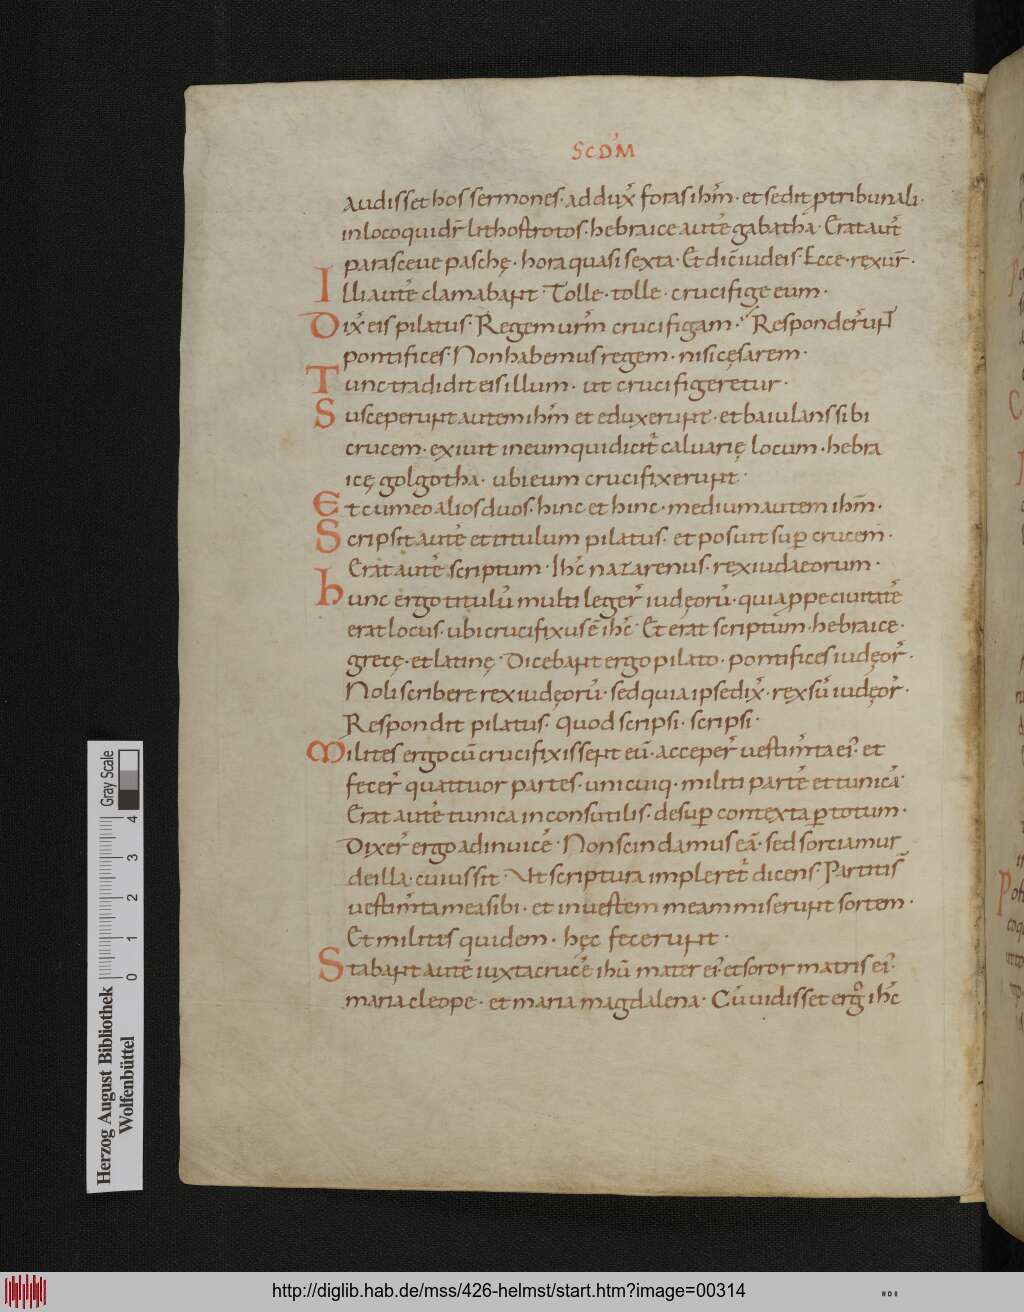 SCDM
audisset hos sermones· adduxͭ foras ihm̄· et sedit p tribunali·
in loco qui dr̄ lithostrotos· hebraice autē gabatha· Erat aut̄
parasceue paschę· hora quasi sexta· Et dic̄ iudeis· Ecce· rex ur̄·
Illi autē clamabant· Tolle· tolle· crucifige eum·
Dix̄ eis pilatus· Regem urm̄ crucifigam· Responder̄unt
pontifices· Non habemus regem· nisi cęsarem·
Tunc tradidit eis illum· ut crucifigeretur·
Susceperunt autem ihm̄ et eduxerunt· et baiulans sibi
crucem· exiuit in eum qui dicit̄ caluarię locum· hebra
icę golgotha· ubi eum crucifixerunt·
Et cum eo alios duos· hinc et hinc· medium autem ihm̄·
Scripsit autē et titulum pilatus· et posuit sup̄ crucem·
Erat autē scriptum· Ihc̄ nazarenus· rex iudaeorum·
hunc ergo titulū multi leger̄ iudęorū· quia ppe ciuitatē
erat locus· ubi crucifixus ē ihc̄· Et erat scriptum· hebraice·
grecę· et latinę· Dicebant ergo pilato· pontifices iudęor̄·
Noli scribere rex iudęorū· sed quia ipse dix̄· rex sū iudęor̄·
Respondit pilatus· quod scripsi· scripsi·
Milites ergo cū crucifixissent eū· acceper̄ uestim̄ta ei· et
fecer̄ quattuor partes· unicuiq· militi partē et tunicā·
Erat autē tunica inconsutilis· desup̄ contexta p̄ totum·
Dixer̄ ergo adinuicē· Non scindamus eā· sed sorciamur
de illa· cuius sit· Ut scriptura impleret̄ dicens· Partiti s̄
uestim̄ta mea sibi· et in uestem meam miserunt sortem·
Et milites quidem· hęc fecerunt·
Stabant autē iuxta crucē ihū mater ei· et soror matris ei·
maria cleope· et maria magdalena· Cū uidisset ergo ihc̄
Herzog August Bibliothek
Wolfenbüttel
Gray Scale
0 1 2 3 4
http://diglib.hab.de/mss/426-helmst/start.htm?image=00314